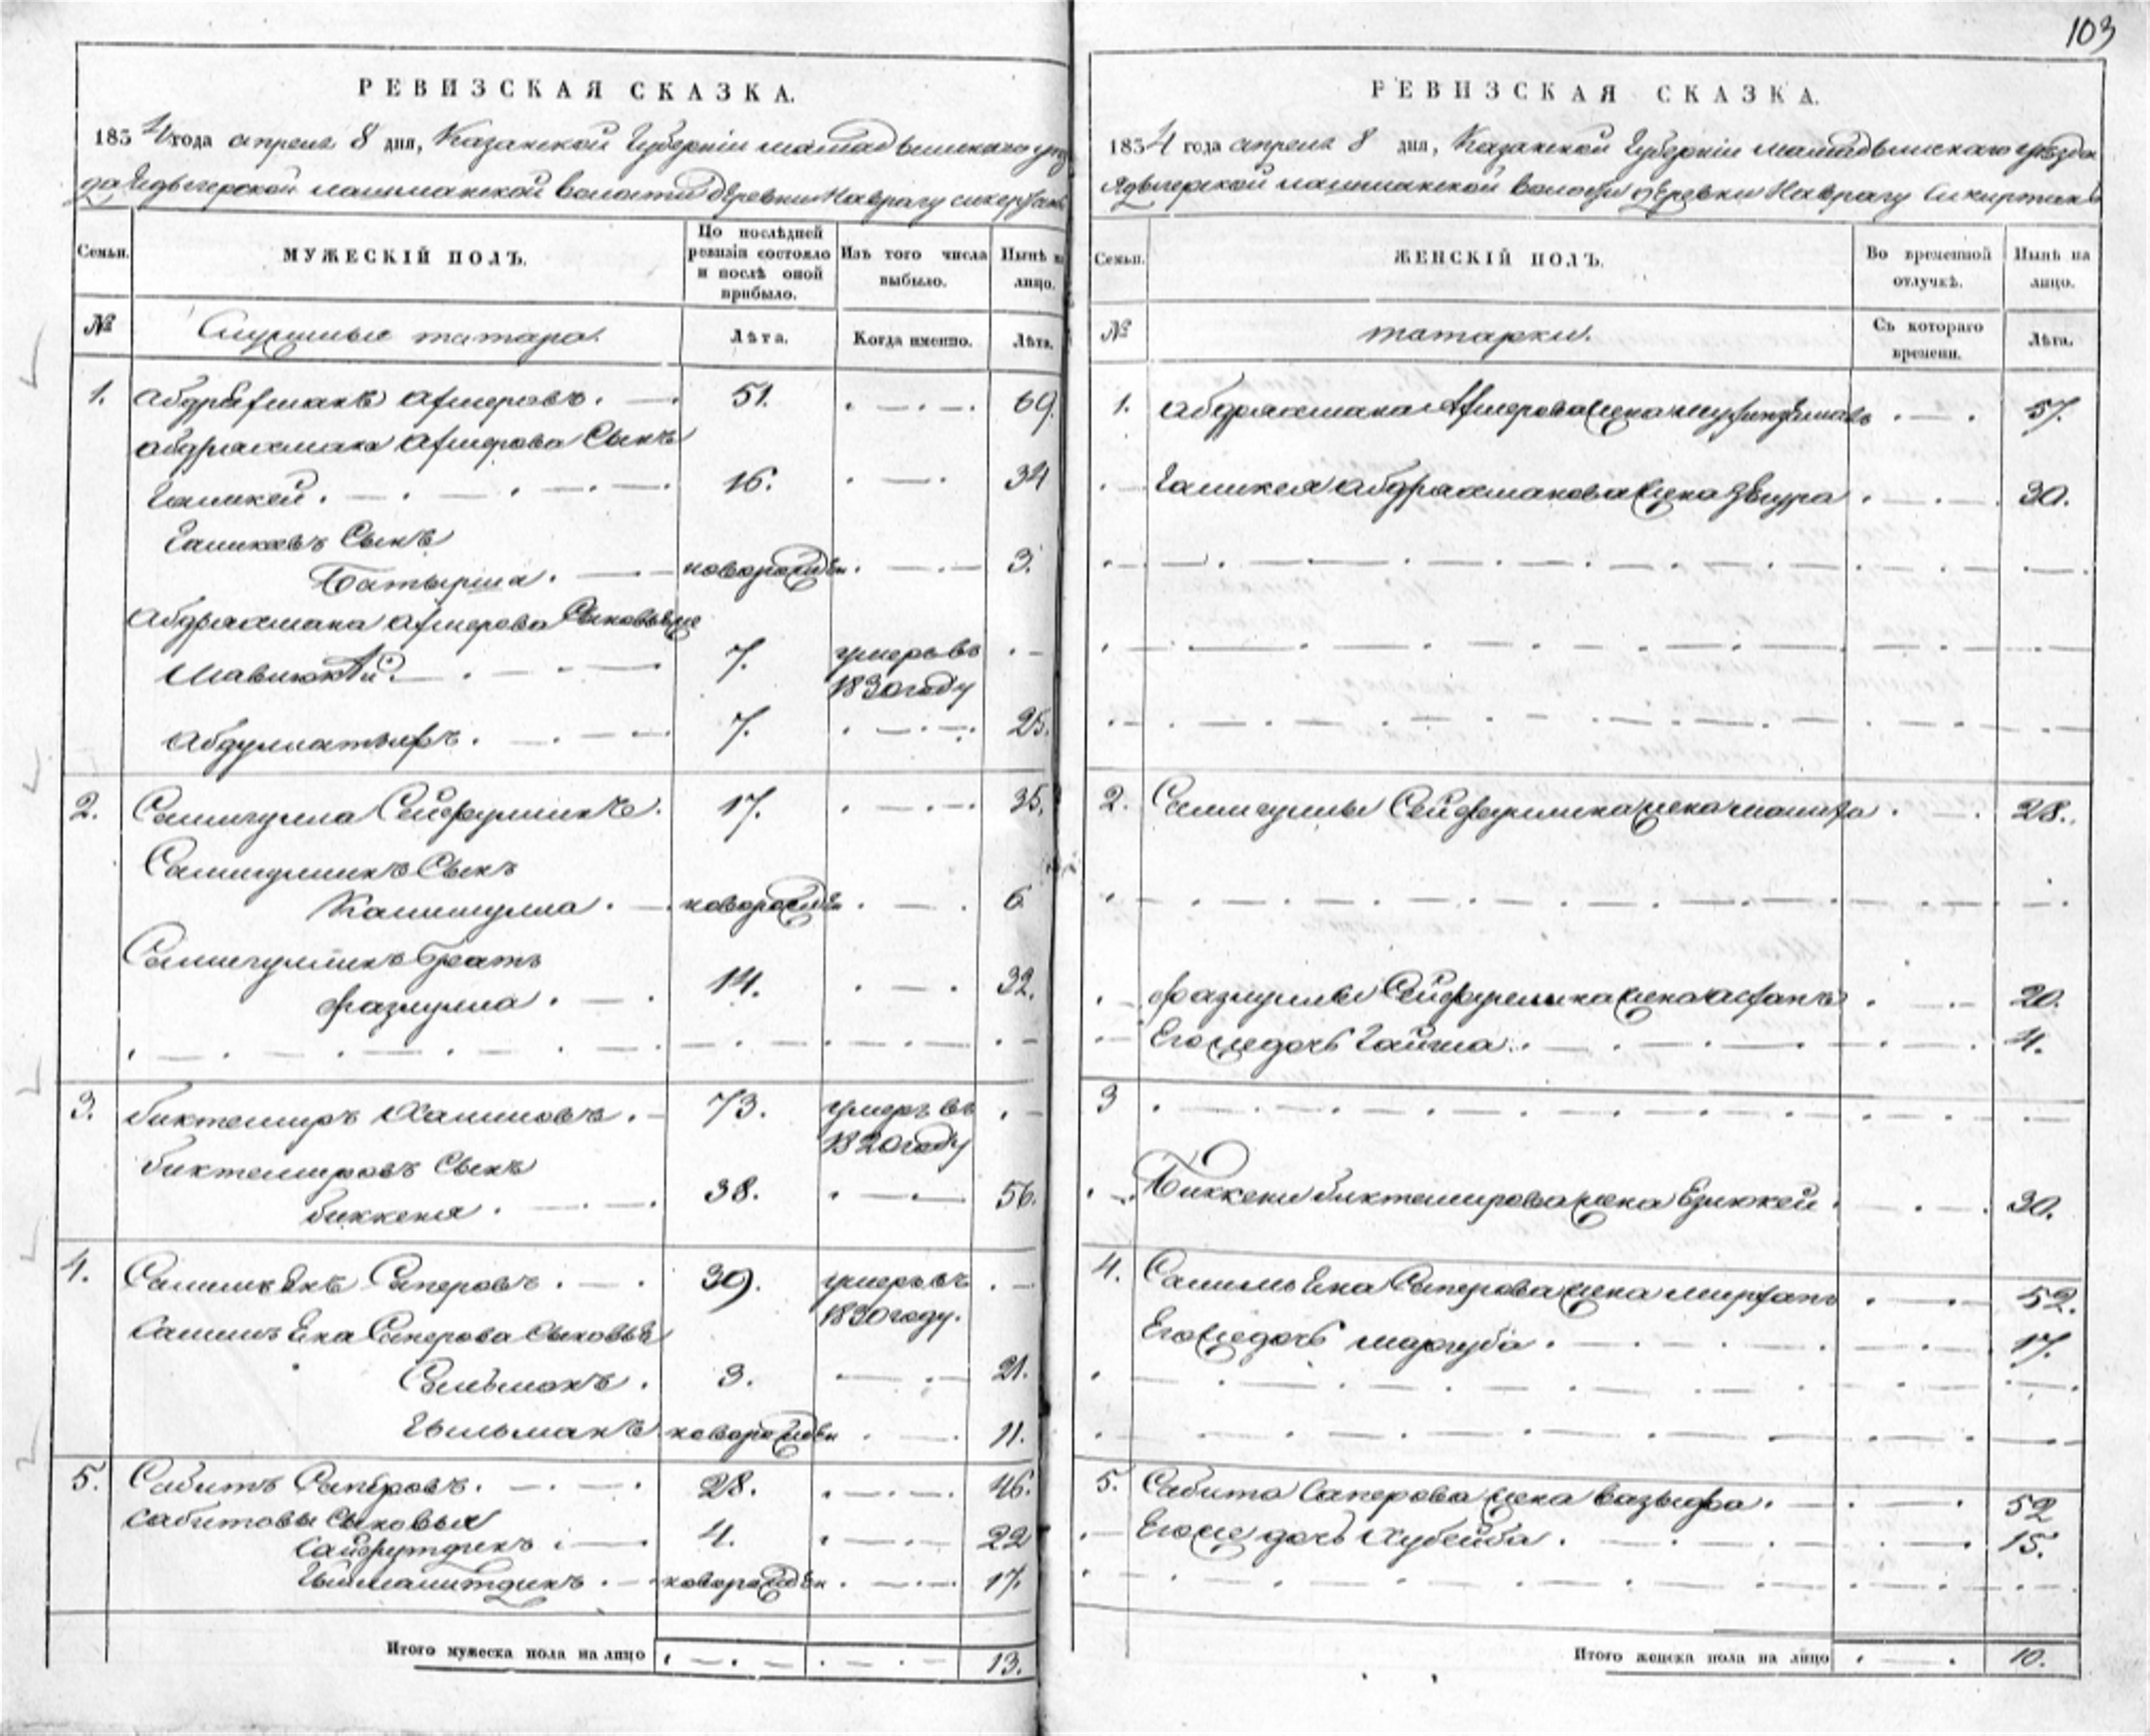 103
РЕВИЗСКАЯ СКАЗКА.
1834 года апреля 8 дня, Казанской Губерніи мамадышскаго уез
да ... лашманской волости деревни Наврагу сикертанъ
Семьи.
МУЖЕСКІЙ ПОЛЪ.
По послѣдней ревизіи состояло и послѣ оной прибыло.
Изъ того числа выбыло.
Нынѣ на лицо.
№
Служилые татара.
Лѣта.
Когда именно.
Лѣта.
1. абдрахманъ Ахмеровъ. 51. 69.
абдрахмана ахмерова Сынъ
Галикей. 16. 34
Галикеевъ Сынъ
Батырша. новорожден. 3.
абдрахмана ахмерова Сыновья
7. умеръ въ
1830 году
абдуллатыфъ. 7. 25.
2. Салигулла Сейфуллинъ. 17. 35.
Салигуллинъ Сынъ
Калимулла. новорожден. 6
Салигуллинъ братъ
фазлулла. 14. 32.
3. биктемиръ Халиловъ. 73. умеръ въ
1820 году
биктемировъ Сынъ
биккеня. 38. 56.
4. Сапировъ. 39. умеръ въ
1830 году.
Сапирова Сыновья
Сильманъ. 3. 21.
Гильманъ новорожден 11.
5. Сабитъ Сапировъ. 28. 46.
Сабитовы Сыновья
Сайфутдинъ 4. 22
новорожден. 17.
Итого мужеска пола на лицо 13.
РЕВИЗСКАЯ СКАЗКА.
1834 года апреля 8 дня, Казанской Губерніи мамадышскаго уезда
лашманской волости деревни Наврагу Сикиртанъ
Семьи.
ЖЕНСКІЙ ПОЛЪ.
Во временной отлучкѣ.
Нынѣ на лицо.
№
татарки.
Съ котораго времени.
Лѣта.
1. абдрахмана Ахмерова жена 57.
Галикея абдрахманова жена Зюгра 30.
2. Салигуллы Сейфуллина жена 28.
фазлуллы Сейфуллина жена 20.
Его же дочь Гайша. 4.
3
Биккени биктемирова жена Бзюкей. 30.
4. Сапирова жена 52.
Его же дочь маргуба. 17.
5. Сабита Сапирова жена Вазыфа. 52
Его же дочь Хубейба. 15.
Итого женска пола на лицо 10.